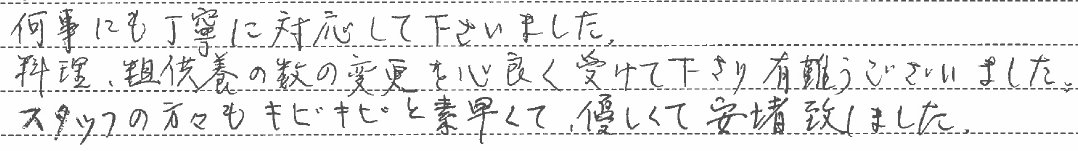 何事にも丁寧に対応して下さいました。
料理、粗供養の数の変更を心良く受けて下さり有難うございました。
スタッフの方々もキビキビと素早くて、優しくて安堵致しました。